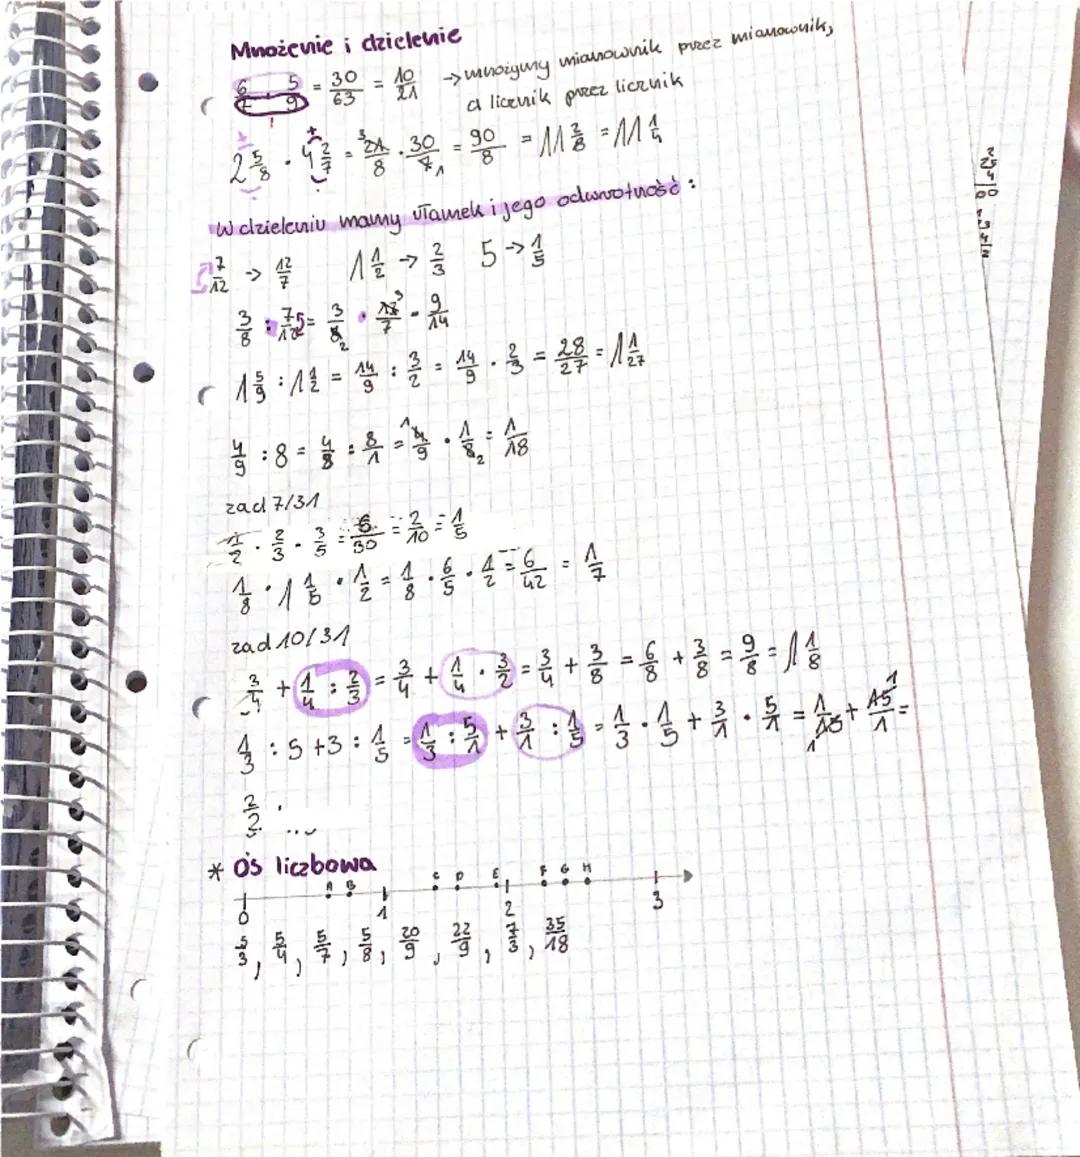 Mnożenie i dzielenie
6/7 · 5/9 = 30/63 = 10/21 → mnożymy mianownik przez mianownik,
a licznik przez licznik
2 5/8 · 4 2/7 = 21/8 · 30/7 = 90/8 = 11 2/8 = 11 1/4
W dzieleniu mamy ułamek i jego odwrotność:
7/12 → 12/7 1 1/2 → 2/3 5 → 1/5
3/8 : 7/12 = 3/8 · 12/7 = 9/14
1 5/9 : 1 1/2 = 14/9 : 3/2 = 14/9 · 2/3 = 28/27 = 1 1/27
4/9 : 8 = 4/9 : 8/1 = 4/9 · 1/8 = 1/18
zad 7/31
1/2 · 2/3 · 3/5 = 6/30 = 2/10 = 1/5
1/8 · 1 1/5 · 1/2 = 1/8 · 6/5 · 1/2 = 6/42 = 1/7
zad 10/31
3/4 + 1/4 : 2/3 = 3/4 + 1/4 · 3/2 = 3/4 + 3/8 = 6/8 + 3/8 = 9/8 = 1 1/8
1/3 : 5 + 3 : 1/5 = 1/3 : 5/1 + 3/1 : 1/5 = 1/3 · 1/5 + 3/1 · 5/1 = 1/15 + 15/1 =
* Oś liczbowa
A B C D E F G H
0 1 2 3
5/3, 5/4, 5/7, 5/8, 20/9, 22/9, 7/3, 35/18